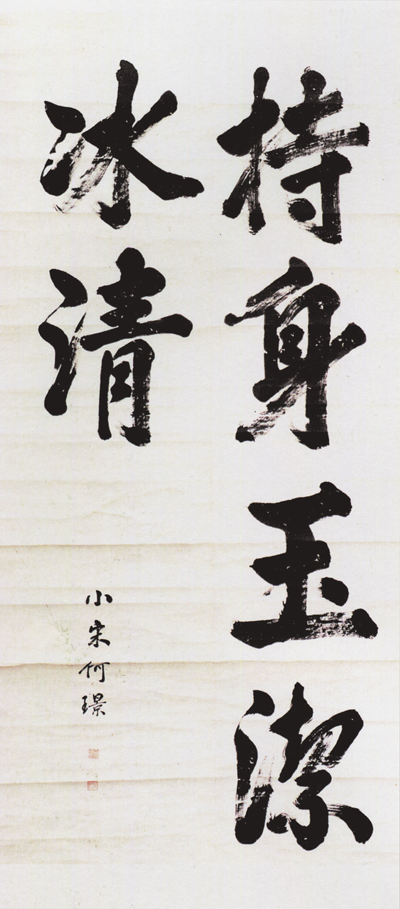 持身玉潔
冰清
小宋何璟